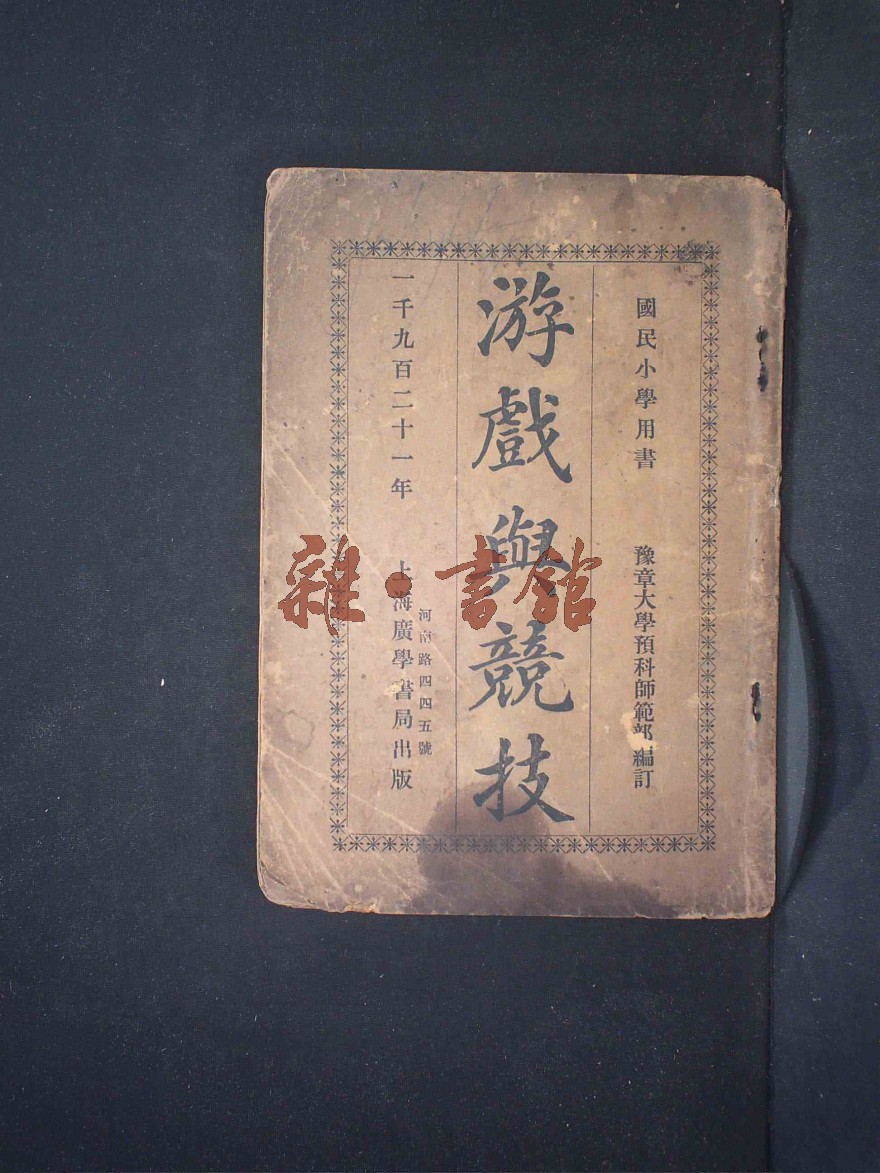 國民小學用書
豫章大學預科師範部編訂
游戲與競技
河南路四四五號
一千九百二十一年
上海廣學書局出版
雜·書館